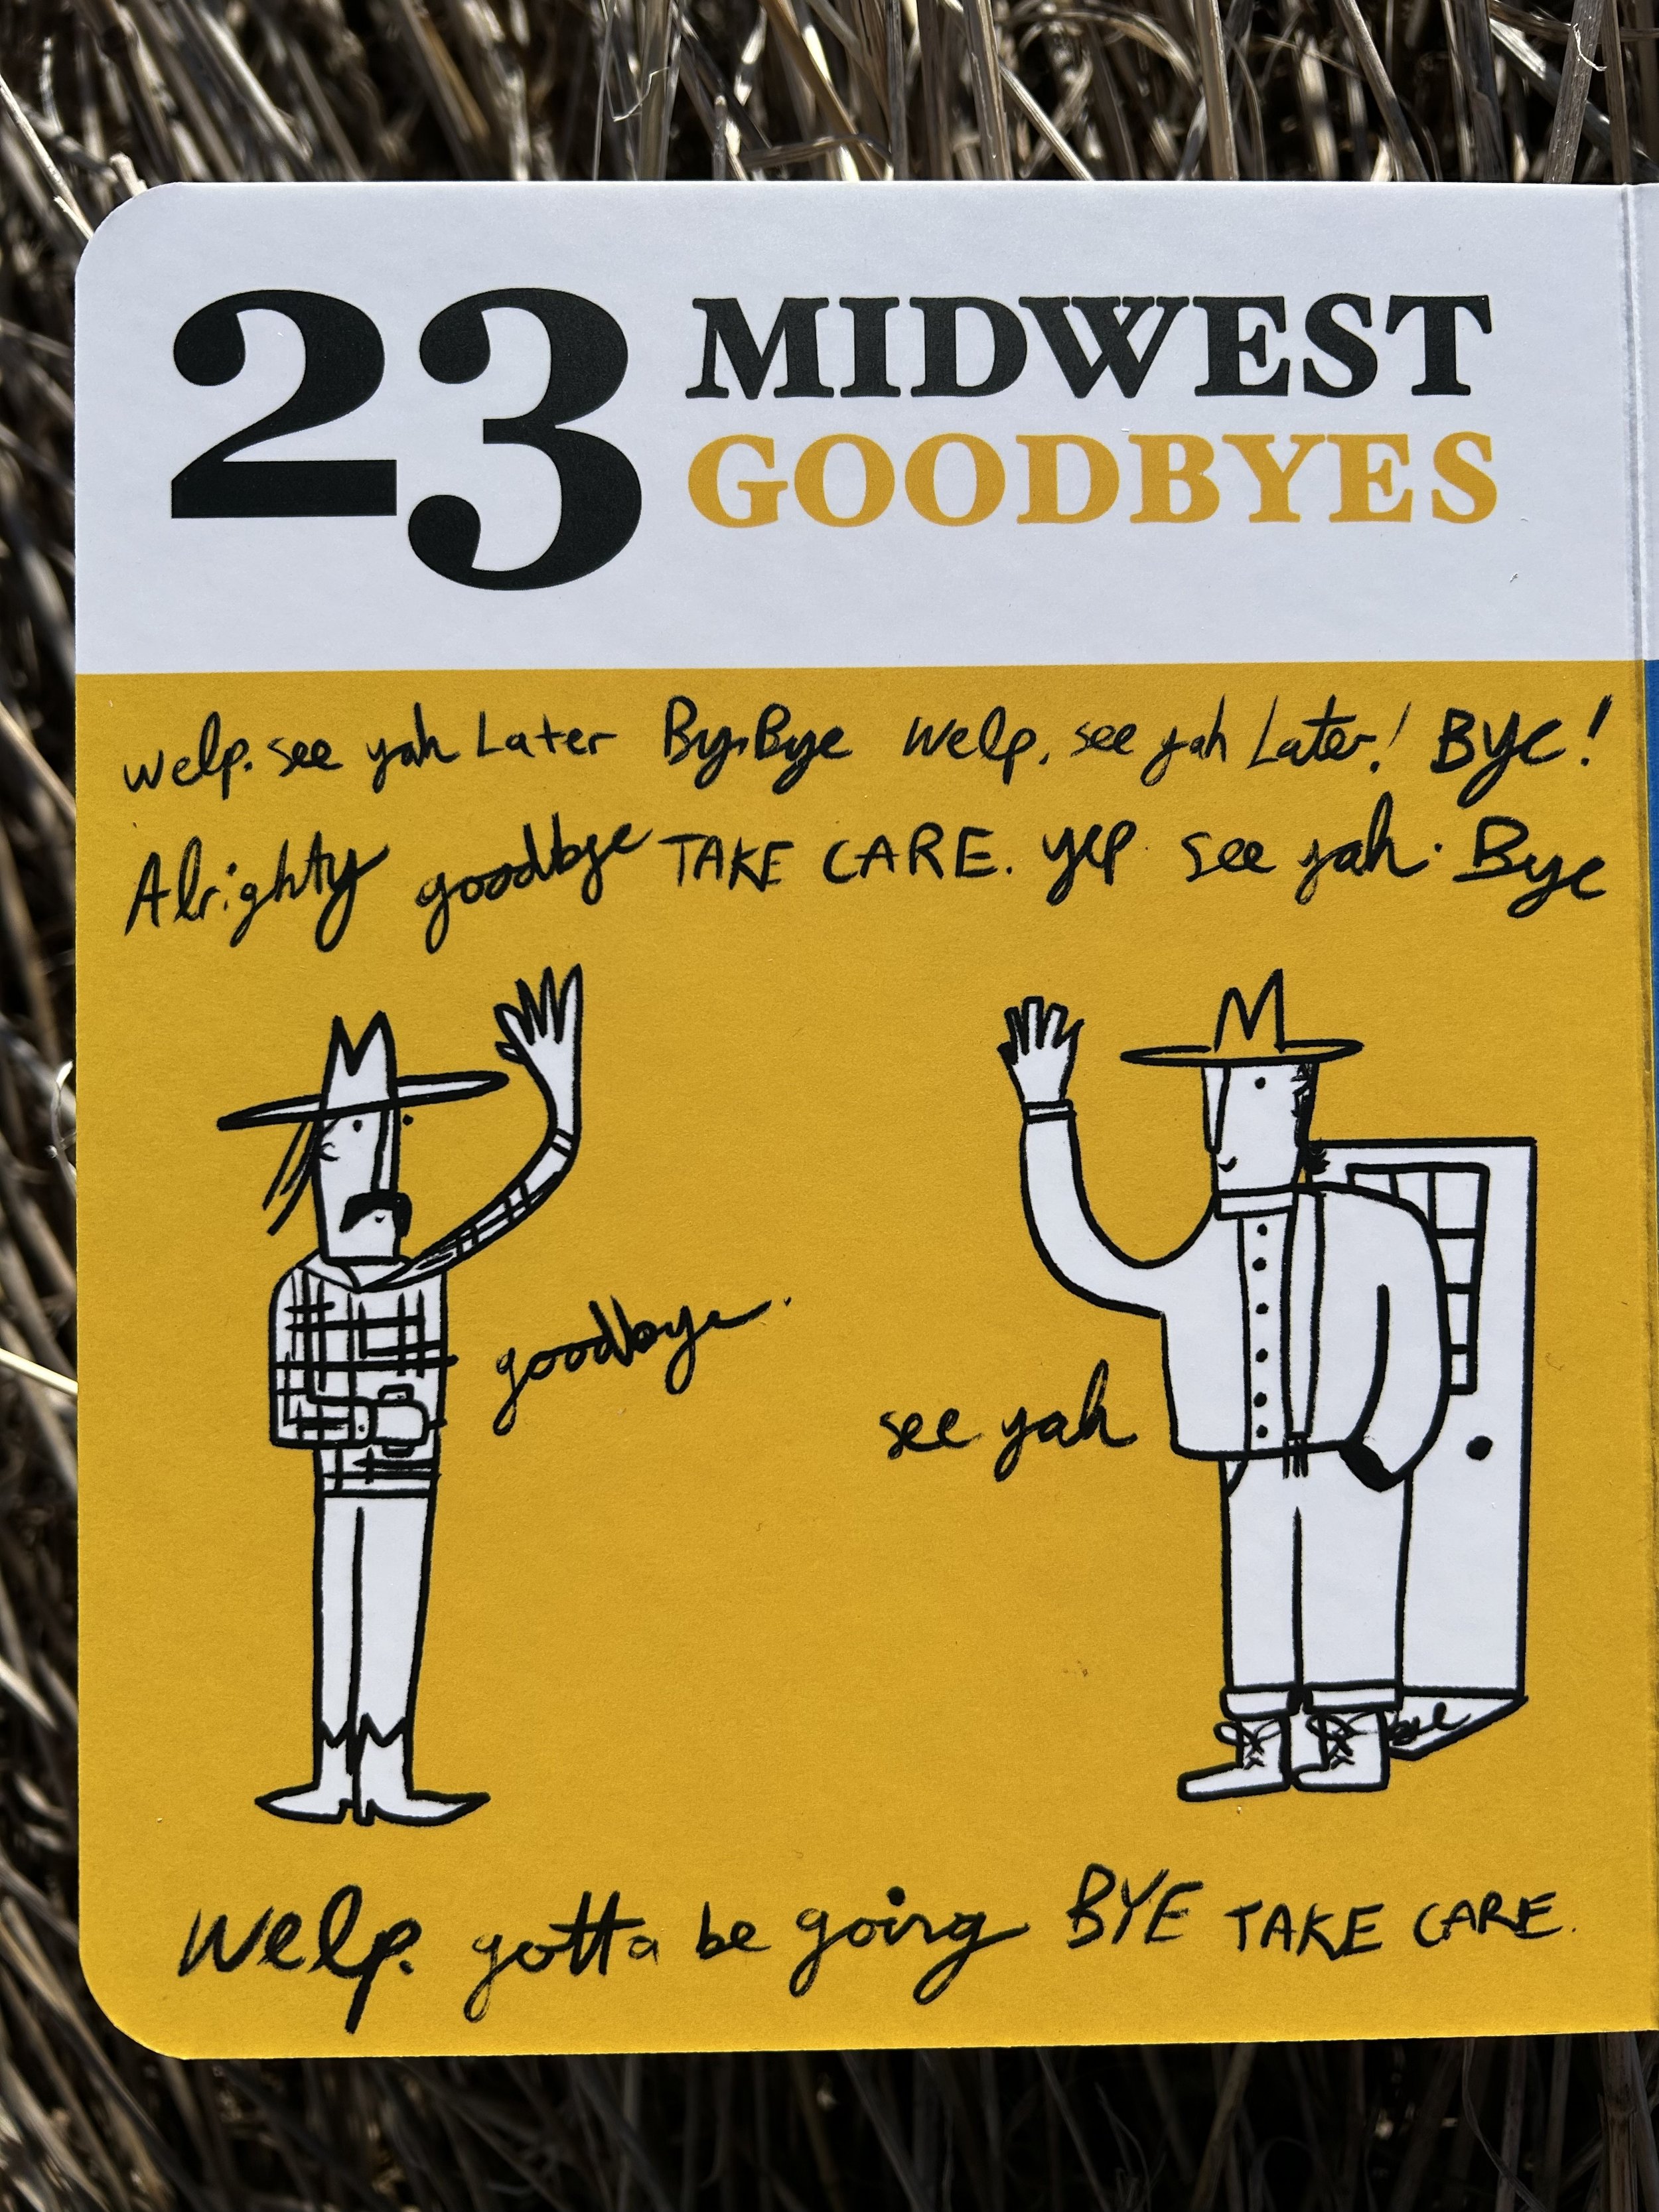 23 MIDWEST
GOODBYES
welp. see yah Later By.Bye welp, see yah Later! Bye!
Alrighty goodbye TAKE CARE. yep. see yah. Bye
goodbye.
see yah
bye
welp. gotta be going BYE TAKE CARE.